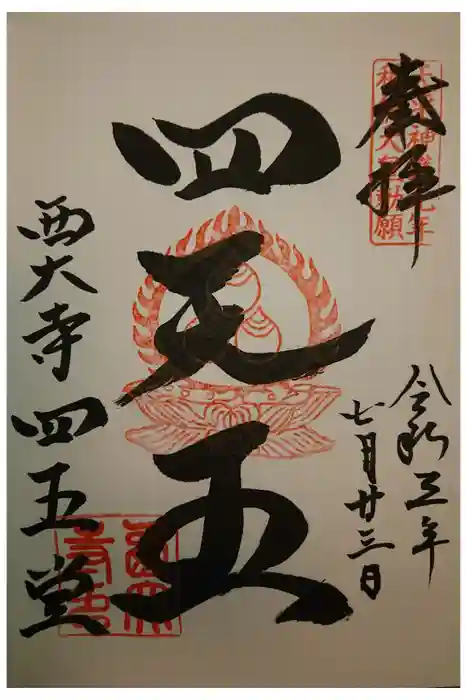 奉拝
令和三年
七月廿三日
四天王
西大寺四王堂